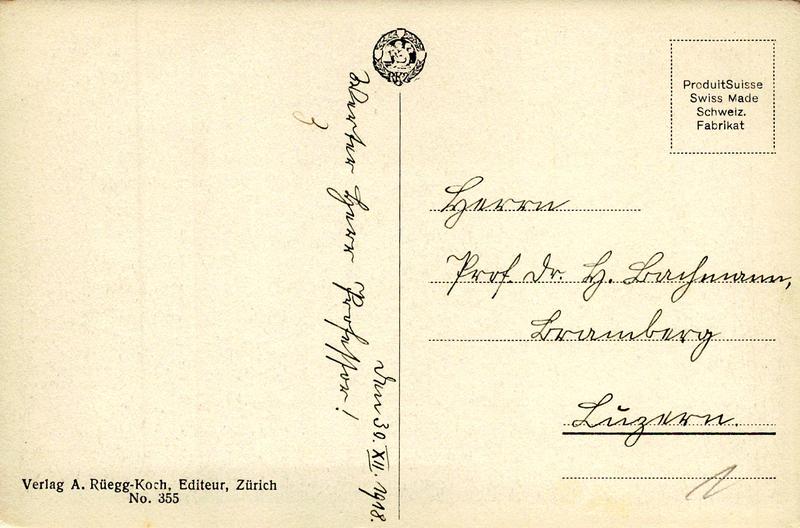 den 30. XII. 1918.
Werter Herr Professor!
ProduitSuisse
Swiss Made
Schweiz.
Fabrikat
Herrn
Prof. Dr. H. Bachmann,
Bramberg
Luzern.
Verlag A. Rüegg-Koch, Editeur, Zürich
No. 355